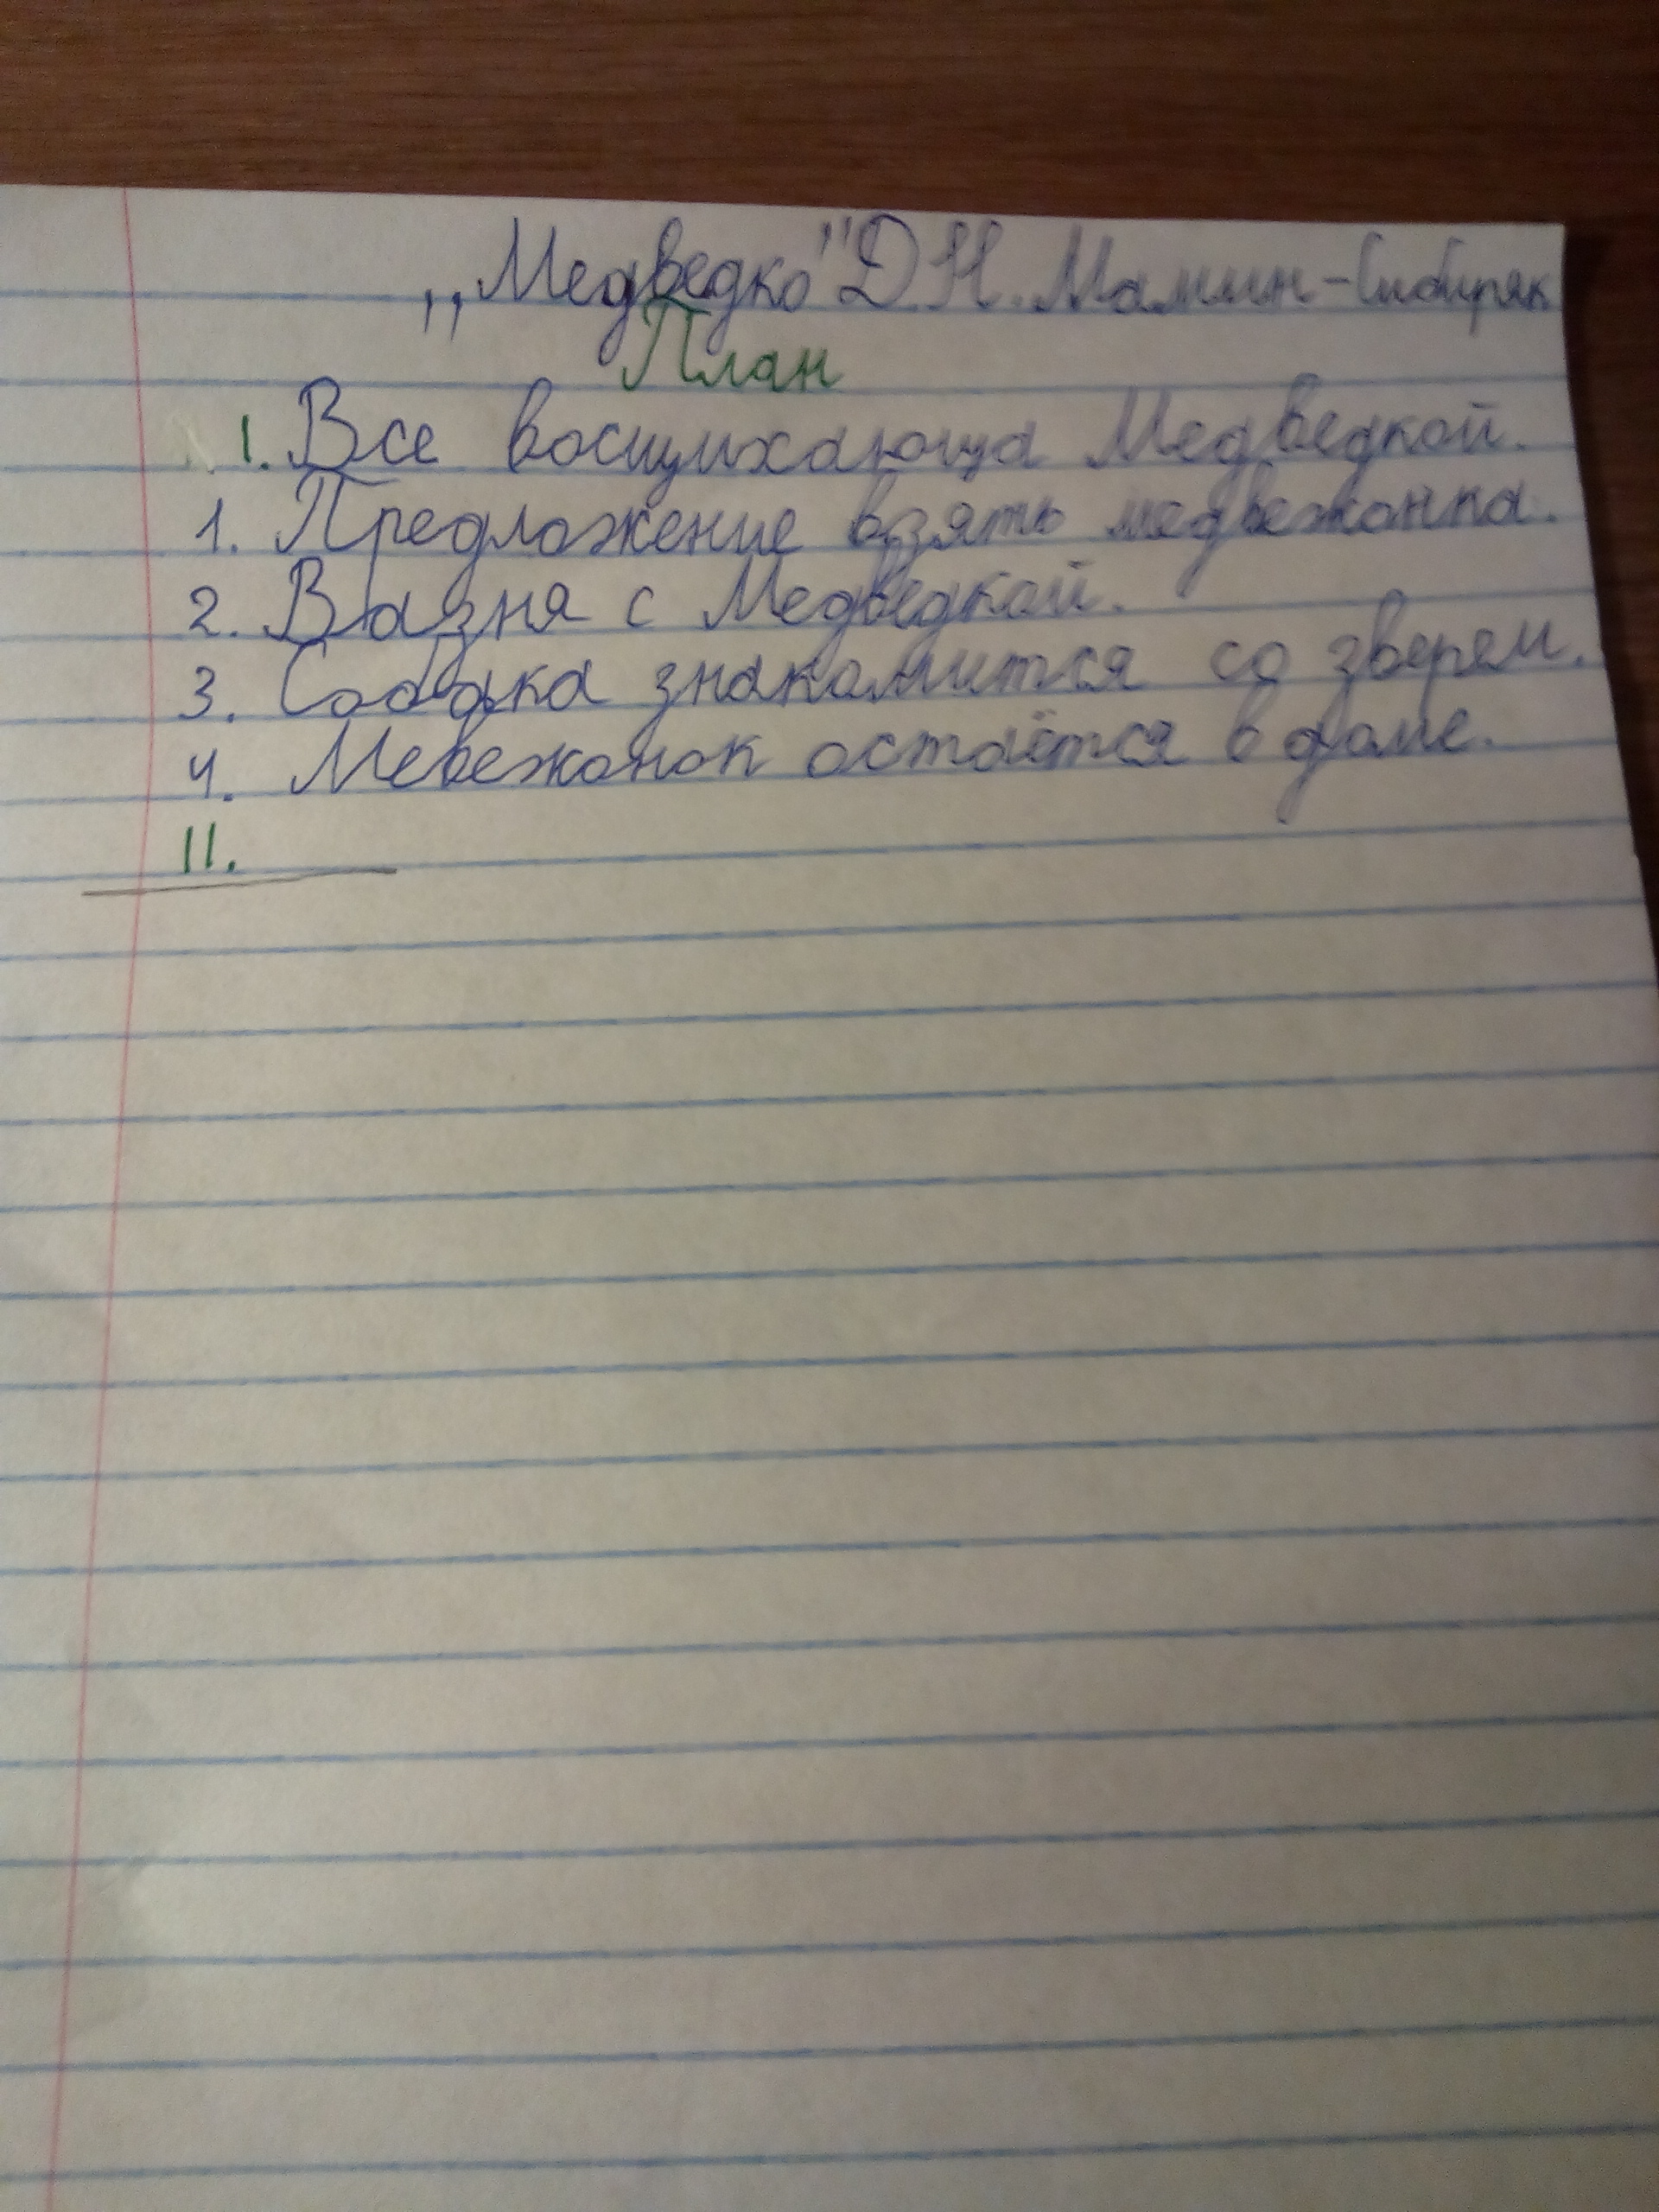 ,,Медведко" Д.Н. Мамин-Сибиряк
План
I. Все восщихающа Медведкой.
1. Предложение взять медвежонка.
2. Вазня с Медведкой.
3. Собака знакомится со зверем.
4. Мевежонок остаётся в доме.
II.